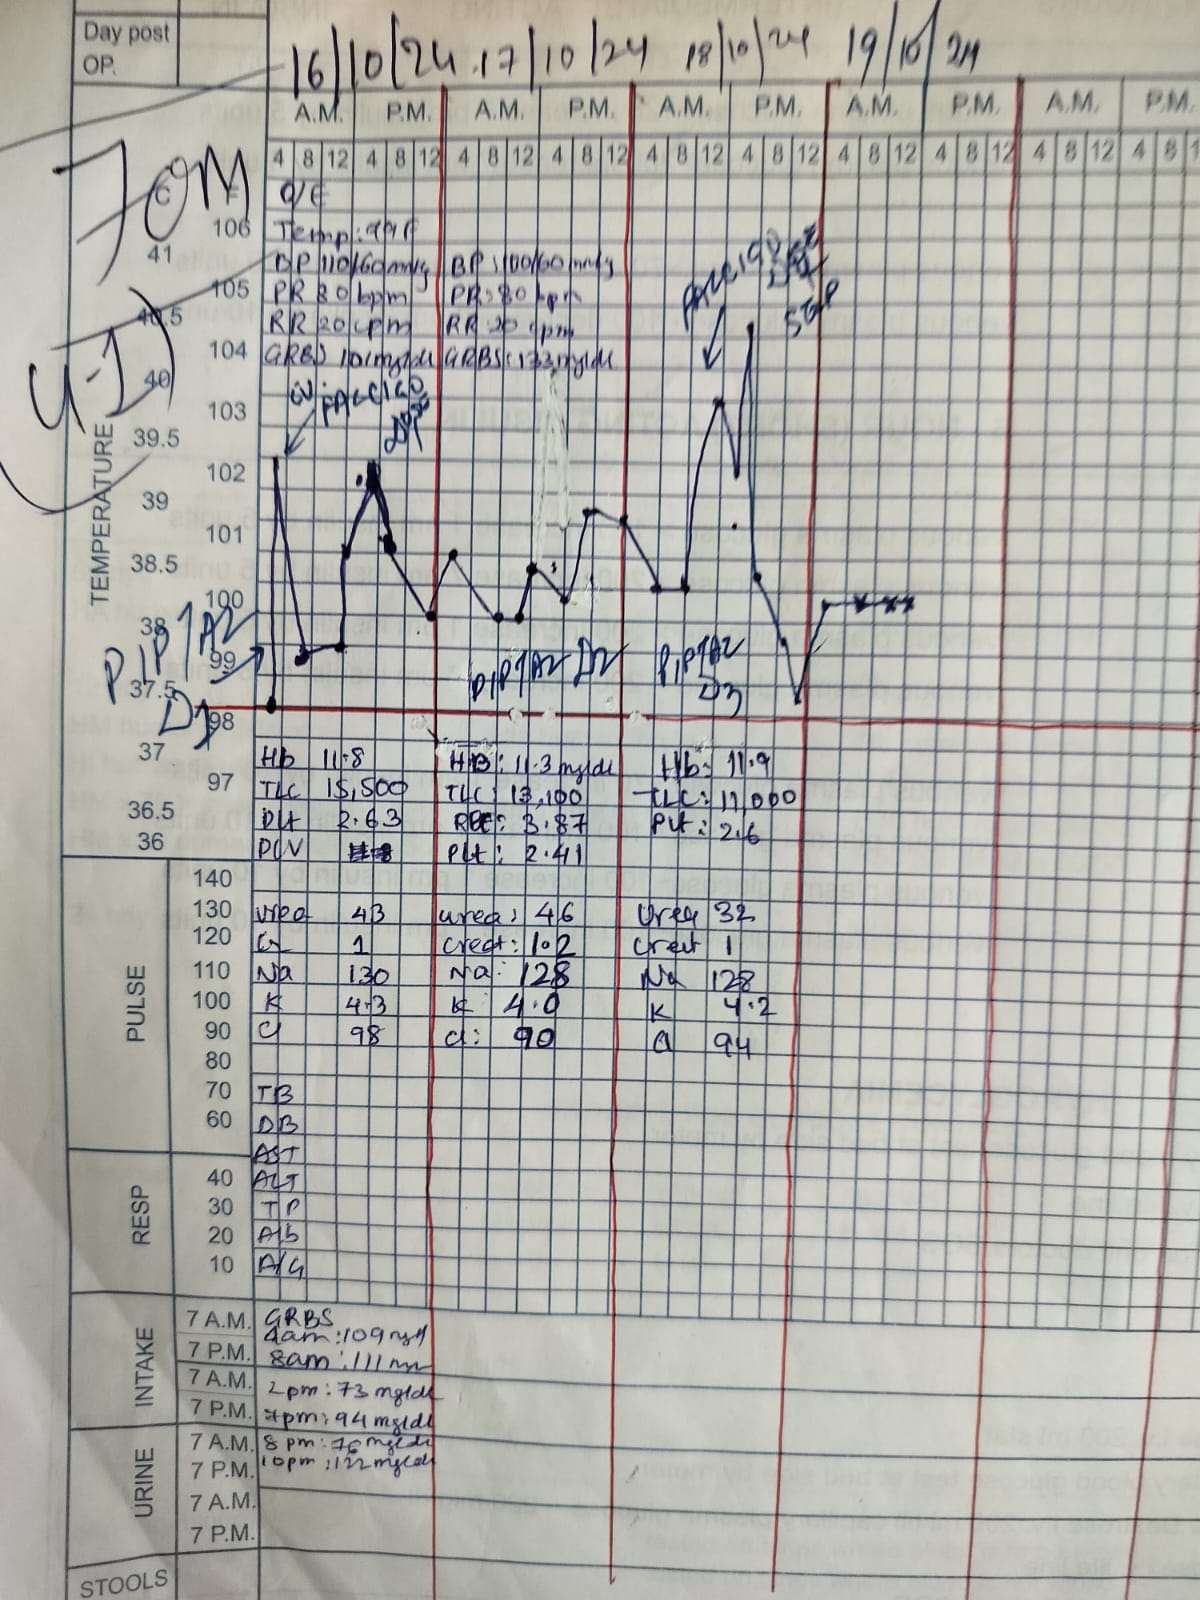 Day post
OP.
16/10/24 17/10/24 18/10/24 19/10/24
A.M. P.M. A.M. P.M. A.M. P.M. A.M. P.M. A.M. P.M.
4 8 12 4 8 12 4 8 12 4 8 12 4 8 12 4 8 12 4 8 12 4 8 12 4 8 12 4 8
70M
C
O/E
106 Temp: 99F
41 BP 110/60mmHg BP: 100/60mmHg
105 PR 80 bpm PR: 80 bpm
40.5 RR 20 cpm RR: 20 cpm
104 GRBS 101mg/dl GRBS: 133mg/dl
40
103
39.5
102
39
101
38.5
100
38
99
37.5
98
TEMPERATURE
STAT
PIPTAZ
D1
PIPTAZ D2
PIPTAZ
D3
37 Hb 11.8 HB: 11.3 mg/dl Hb: 11.9
97 TLC 15,500 TLC: 13,100 TLC: 11,000
36.5 Plt 2.63 RBC: 3.87 Plt: 2.6
36 PCV Plt: 2.41
140
130 Urea 43 urea: 46 Urea 32
120 Cr 1 creat: 1.2 Creat 1
110 Na 130 Na: 128 Na 128
100 K 4.3 K 4.0 K 4.2
90 Cl 98 Cl: 90 Cl 94
80
70 TB
60 DB
PULSE
AST
40 ALT
30 TP
20 Alb
10 A/G
RESP
7 A.M. GRBS
4am: 109 mg/dl
7 P.M. 8am: 111 mg
7 A.M. 2pm: 73 mg/dl
7 P.M. 7pm: 94 mg/dl
INTAKE
7 A.M. 8 pm: 76 mg/dl
7 P.M. 10pm: 122mg/dl
7 A.M.
7 P.M.
URINE
STOOLS